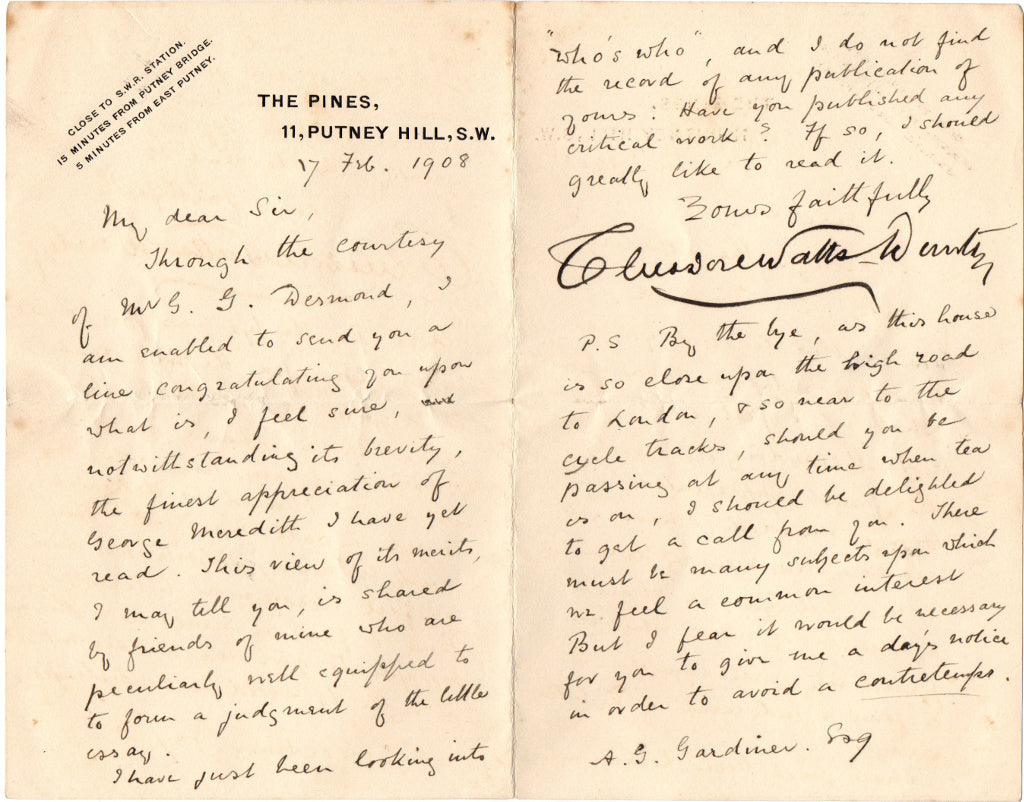 CLOSE TO S.W.R. STATION.
15 MINUTES FROM PUTNEY BRIDGE.
5 MINUTES FROM EAST PUTNEY.
THE PINES,
11, PUTNEY HILL, S.W.
17 Feb. 1908
My dear Sir,
Through the courtesy
of Mr G. G. Desmond, I
am enabled to send you a
line congratulating you upon
what is, I feel sure,
notwithstanding its brevity,
the finest appreciation of
George Meredith I have yet
read. This view of its merits,
I may tell you, is shared
by friends of mine who are
peculiarly well equipped to
to form a judgment of the little
essay.
I have just been looking into
"Who's who", and I do not find
the record of any publication of
yours: Have you published any
critical work? If so, I should
greatly like to read it.
Yours faithfully
Theodore Watts-Dunton
P.S By the bye, as this house
is so close upon the high road
to London, & so near to the
cycle tracks, should you be
passing at any time when tea
is on, I should be delighted
to get a call from you. There
must be many subjects upon which
we feel a common interest
But I fear it would be necessary
for you to give me a day's notice
in order to avoid a contretemps.
A. G. Gardiner. Esq